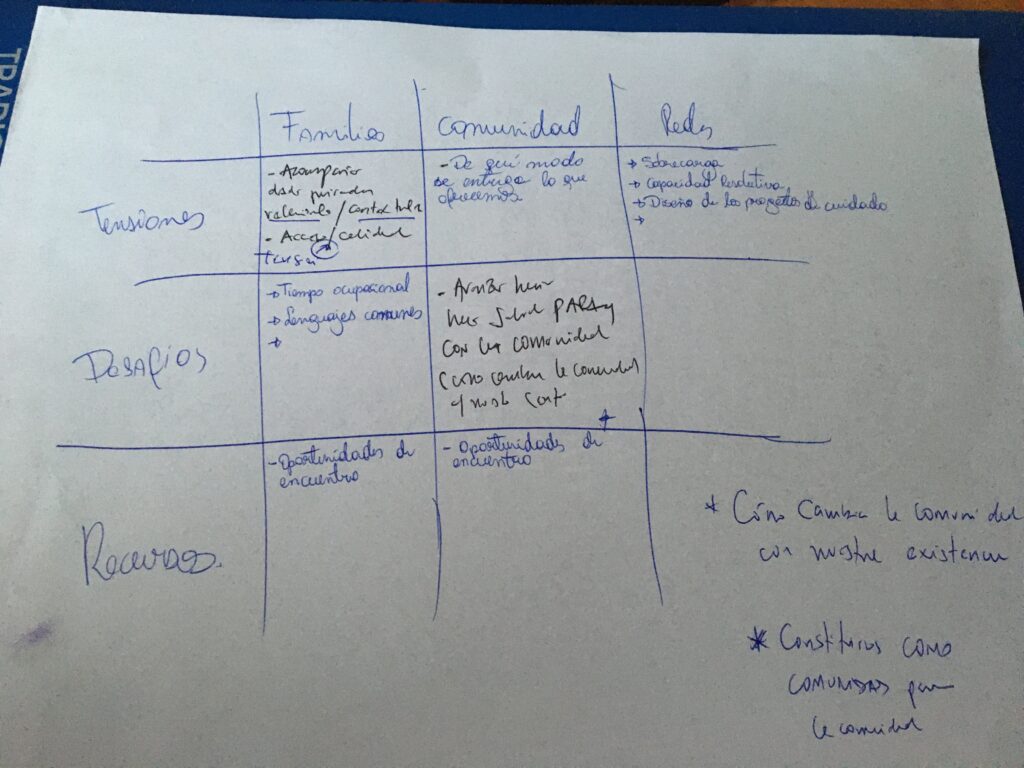 Familias
Comunidad
Redes
Tensiones
- Acompañar
desde miradas
/
- Acceso/calidad
- De qué modo
se entrega lo que
ofrecemos
→ Sobrecarga
→ Capacidad Resolutiva
→ Diseño de los proyectos de cuidado
→
Desafíos
→ Tiempo ocupacional
→ Lenguajes comunes
→
-
hacer Salud PARA y
con la comunidad
(cómo cambia la comunidad
Recursos.
- Oportunidades de
encuentro
- Oportunidades de
encuentro
* Cómo cambia la comunidad
con nuestra existencia
* Constituirnos como
COMUNIDAD para
la comunidad